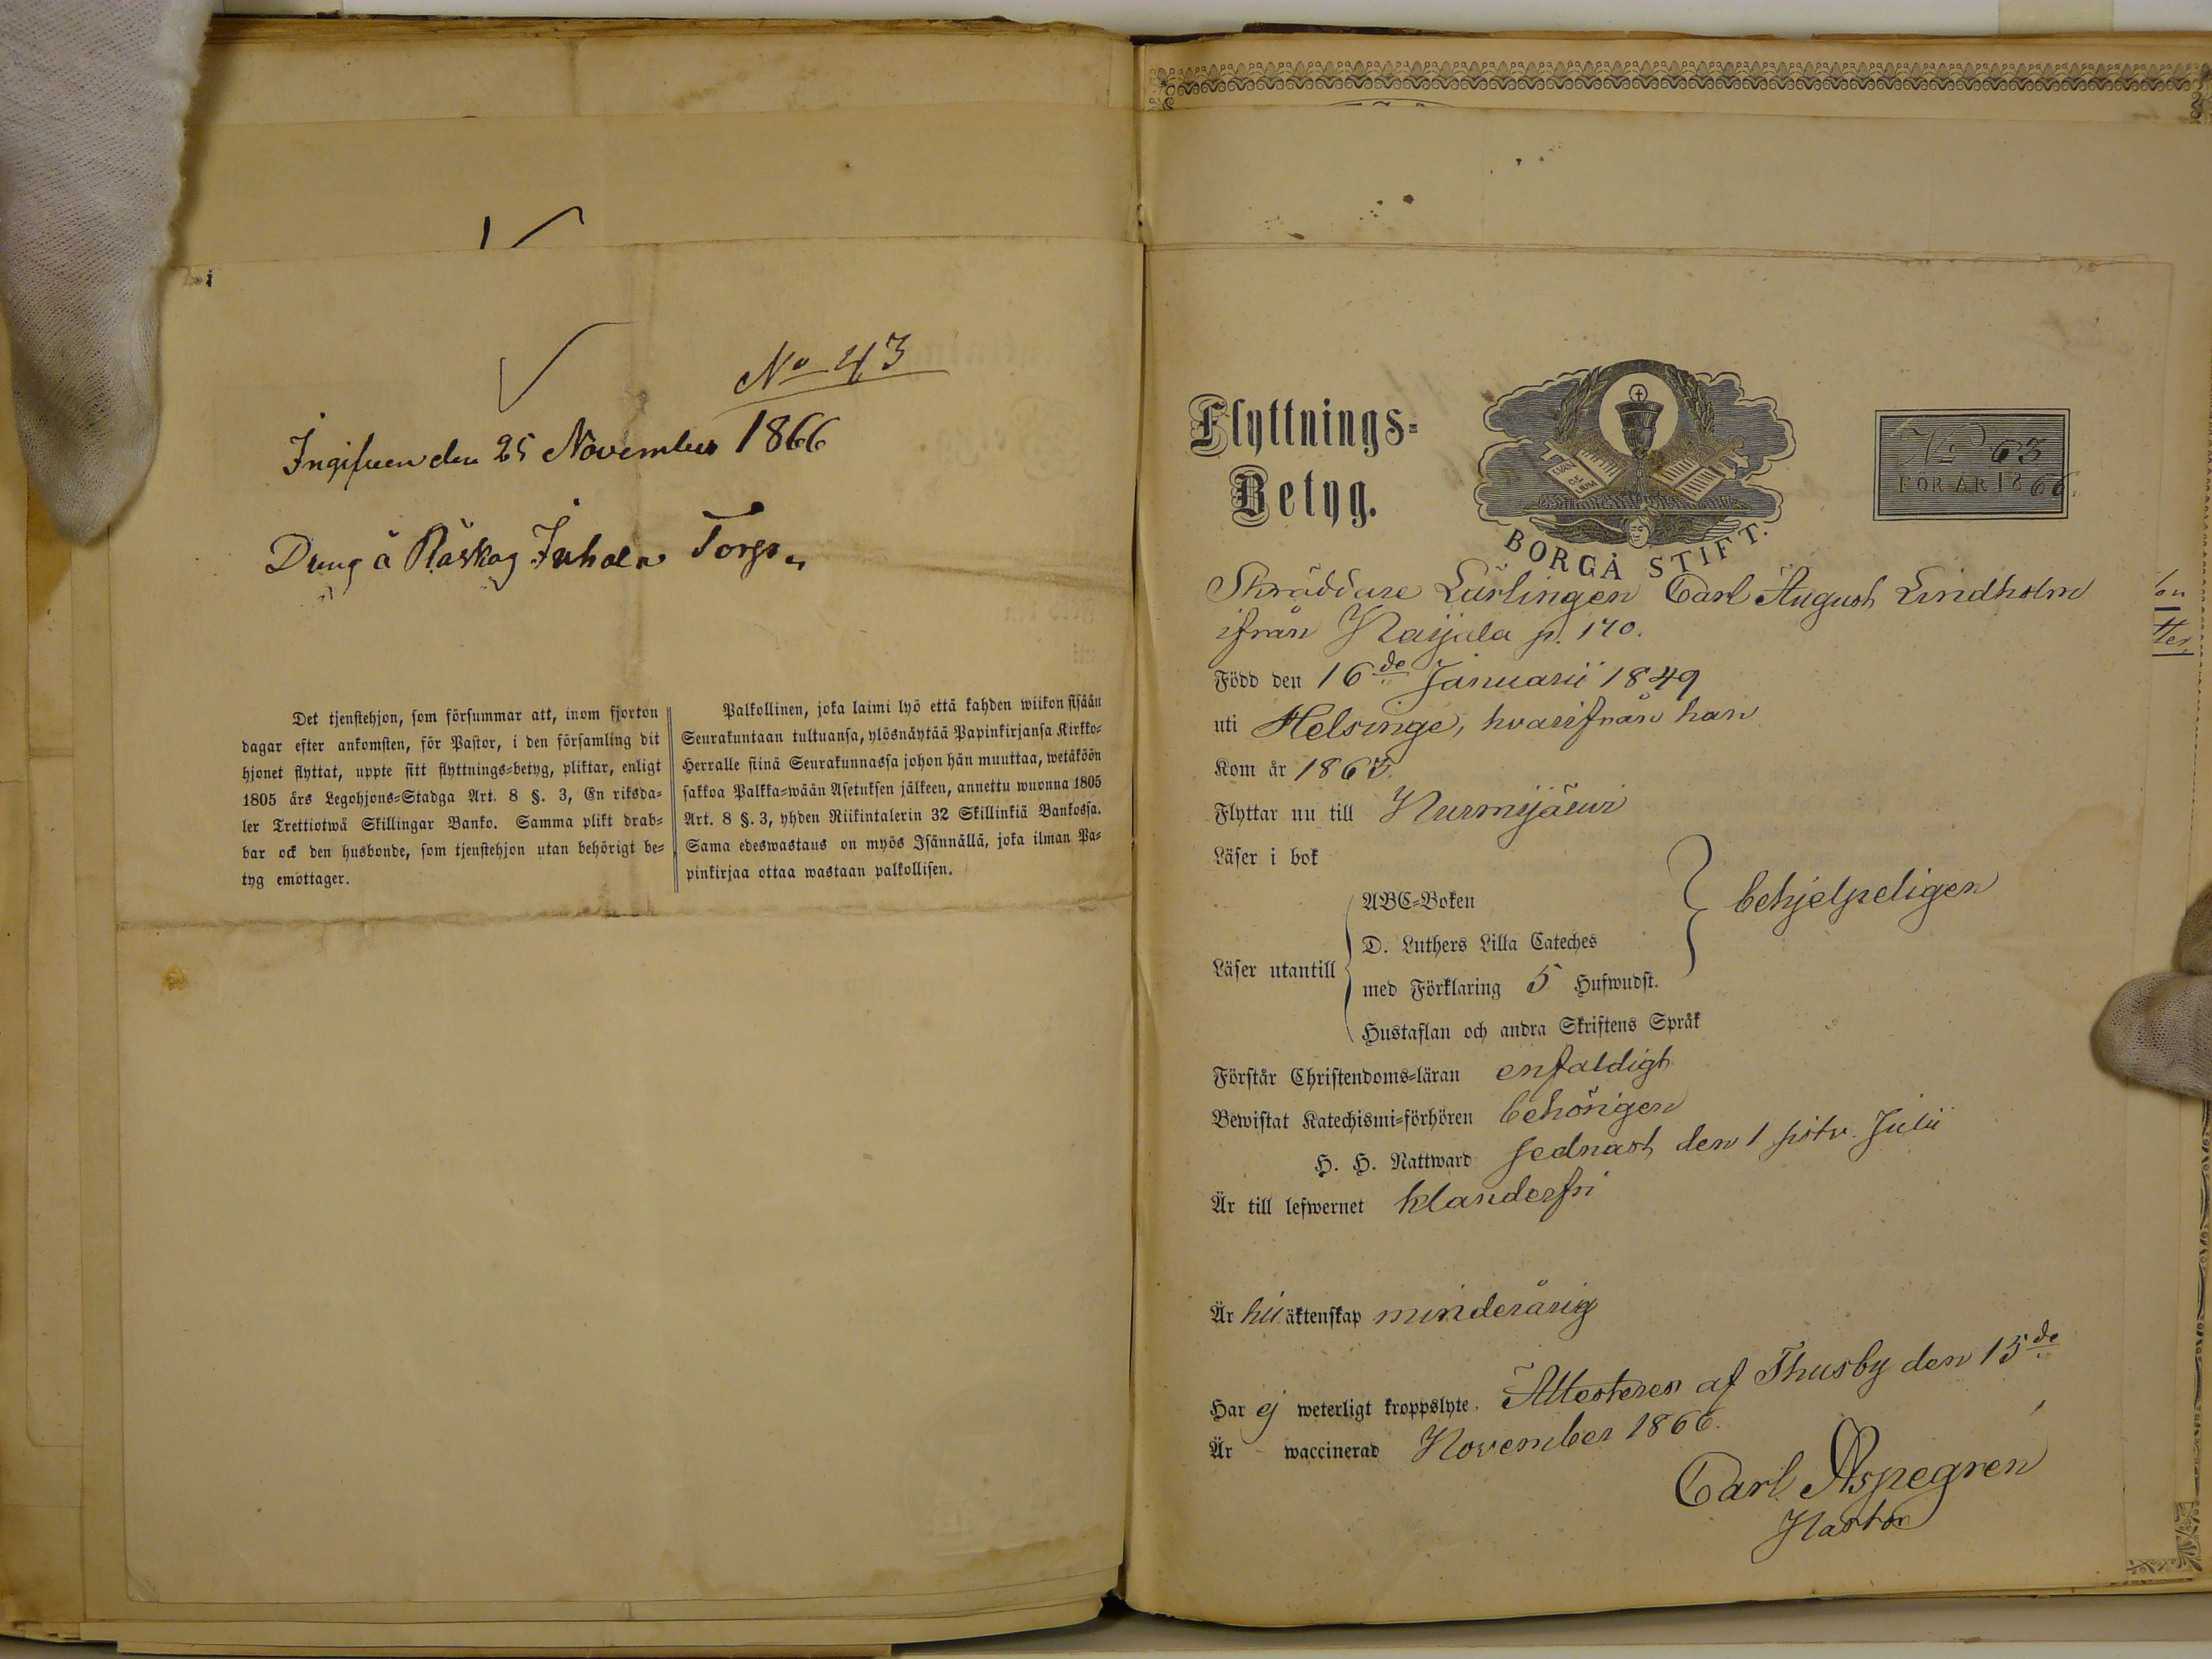 No 43
Ingifven den 25 November 1866
Dräng å Råskog Inhola Torp.
Det tjenstehjon, som försummar att, inom fjorton
dagar efter ankomsten, för Pastor, i den församling dit
hjonet flyttat, uppte sitt flyttnings=betyg, pliktar, enligt
1805 års Legohjons=Stadga Art. 8 §. 3, En riksda=
ler Trettiotwå Skillingar Banko. Samma plikt drab=
bar ock den husbonde, som tjenstehjon utan behörigt be=
tyg emottager.
Palkollinen, joka laimi lyö että kahden wiikon sisään
Seurakuntaan tultuansa, ylösnäytää Papinkirjansa Kirkko=
Herralle siinä Seurakunnassa johon hän muuttaa, wetäköön
sakkoa Palkka=wään Asetuksen jälkeen, annettu wuonna 1805
Art. 8 §. 3, yhden Riikintalerin 32 Skillinkiä Bankossa.
Sama edeswastaus on myös Isännällä, joka ilman Pa=
pinkirjaa ottaa wastaan palkollisen.
Flyttnings=
Betyg.
BORGÅ STIFT.
No 63
FÖR ÅR 1866.
Skräddare Lärlingen Carl August Lindholm
ifrån Paijala p. 170.
Född den 16de Januarii 1849
uti Helsinge, hvarifrån han
Kom år 1863.
Flyttar nu till Nurmijärvi
Läser i bok
Läser utantill
ABC=Boken
D. Luthers Lilla Cateches
med Förklaring 5 Hufwudst.
Hustaflan och andra Skriftens Språk
behjelpeligen
Förstår Christendoms=läran enfaldigt
Bewistat Katechismi=förhören behörigen
H. H. Nattward sednast den 1 sistv. Julii
Är till lefwernet klanderfri
Är till äktenskap minderårig
Har ej weterligt kroppslyte. Attesteres af Thusby den 15de
Är waccinerad November 1866.
Carl Aspegren
Pastor